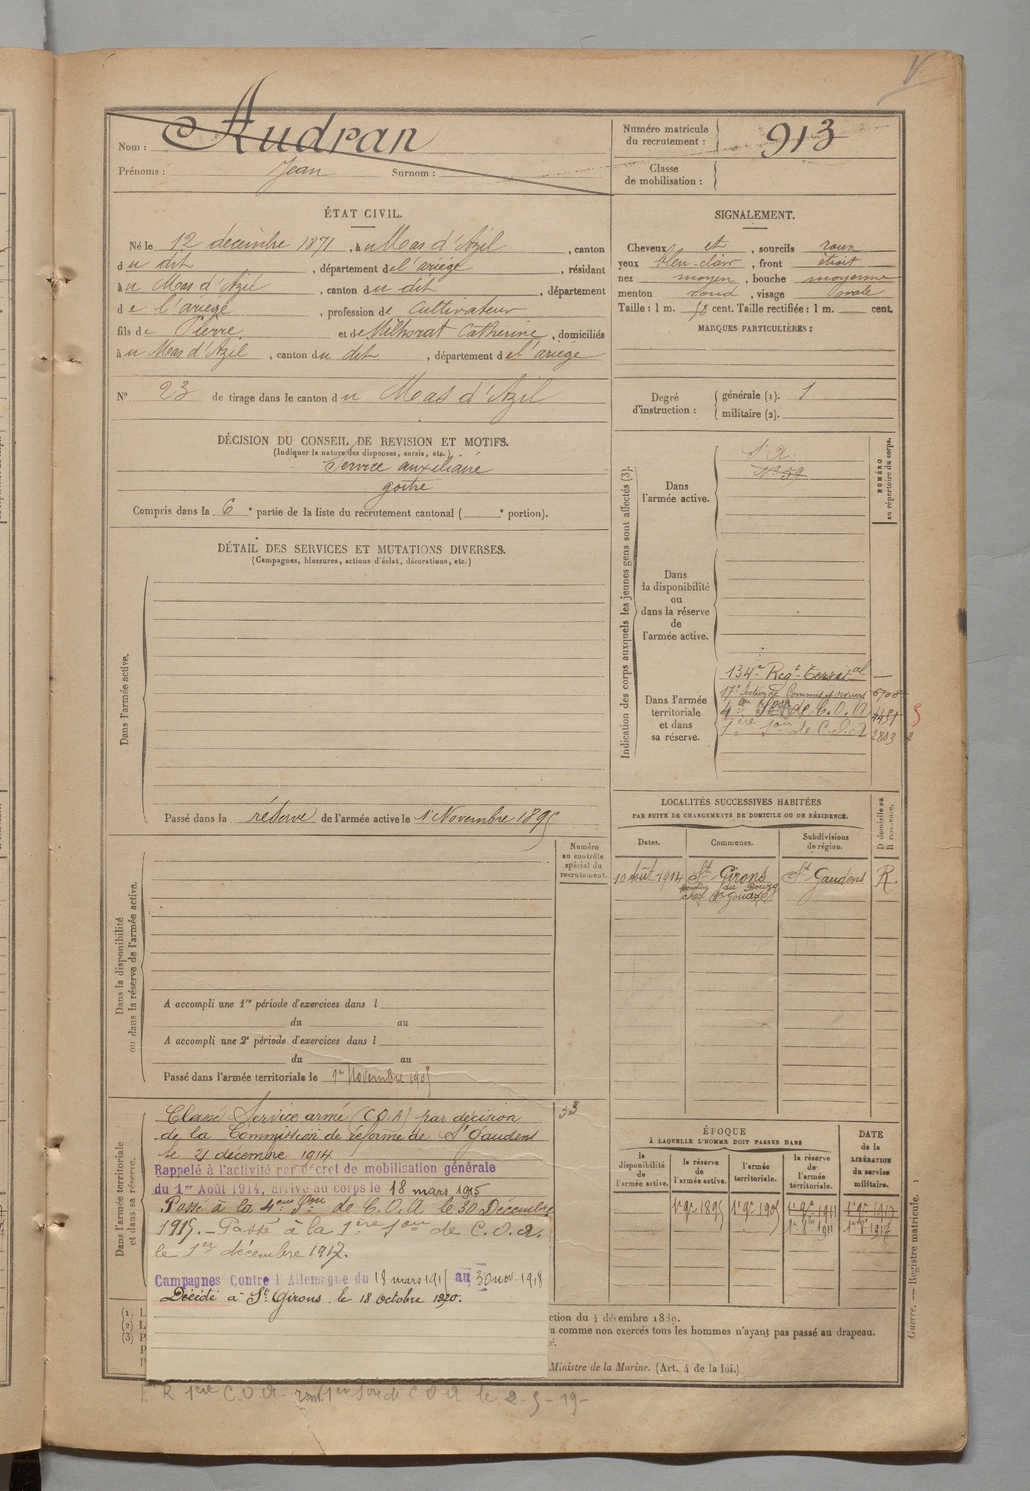 V
Nom : Audran
Prénoms : Jean Surnom :
Numéro matricule du recrutement : 913
Classe de mobilisation :
ÉTAT CIVIL.
Né le 12 décembre 1871, à u Mas d'Azil, canton
du dit, département de l'ariège, résidant
à u Mas d'Azil, canton du dit, département
de l'ariège, profession de Cultivateur
fils de Pierre et de Milhorat Catherine, domiciliés
à u Mas d'Azil, canton du dit, département de l'ariège
N° 23 de tirage dans le canton du Mas d'Azil
SIGNALEMENT.
Cheveux et, sourcils roux
yeux bleu-clair, front étroit
nez moyen, bouche moyenne
menton rond, visage Ovale
Taille : 1 m. 58 cent. Taille rectifiée : 1 m. cent.
MARQUES PARTICULIÈRES :
Degré d'instruction : générale (1). 1
militaire (2).
DÉCISION DU CONSEIL DE REVISION ET MOTIFS.
(Indiquer la nature des dispenses, sursis, etc.)
Service auxiliaire
goitre
Compris dans la 6e partie de la liste du recrutement cantonal ( e portion).
DÉTAIL DES SERVICES ET MUTATIONS DIVERSES.
(Campagnes, blessures, actions d'éclat, décorations, etc.)
Dans l'armée active.
Passé dans la réserve de l'armée active le 1er Novembre 1895
Indication des corps auxquels les jeunes gens sont affectés (3).
NUMÉRO au répertoire du corps.
Dans l'armée active.
S. A.
N° 59
Dans la disponibilité ou dans la réserve de l'armée active.
Dans l'armée territoriale et dans sa réserve.
134e Regt Territal
17e Section de Commis et ouvriers 6708
4eme Son de C.O.A 4451
1ère Son de C.O.A 2803
LOCALITÉS SUCCESSIVES HABITÉES
PAR SUITE DE CHANGEMENTS DE DOMICILE OU DE RÉSIDENCE.
Dates. Communes. Subdivisions de région. D domicile ou R résidence.
10 Août 1914 St Girons St Gaudens R
Numéro au contrôle spécial du recrutement.
Dans la disponibilité ou dans la réserve de l'armée active.
A accompli une 1re période d'exercices dans l
du au
A accompli une 2e période d'exercices dans l
du au
Passé dans l'armée territoriale le 1er Novembre 1905
Dans l'armée territoriale et dans sa réserve.
33
Classé Service armé (C.O.A) par décision
de la Commission de réforme de St Gaudens
le 21 décembre 1914
Rappelé à l'activité par décret de mobilisation générale
du 1er Août 1914, arrivé au corps le 18 mars 1915
Passé à la 4eme Son de C.O.A le 30 Décembre
1915. - Passé à la 1ère Son de C.O.A.
le 1er décembre 1917.
Campagnes Contre l'Allemagne du 18 mars 1915 au 30 nov. 1918
Décédé à St Girons le 18 octobre 1920.
ÉPOQUE
À LAQUELLE L'HOMME DOIT PASSER DANS
la disponibilité de l'armée active. la réserve de l'armée active. l'armée territoriale. la réserve de l'armée territoriale.
DATE de la LIBÉRATION du service militaire.
1er 9e 1895 1er 9e 1905 1er 9e 1911 1er 9e 1917
(1) L
(2) L
(3) P
ction du 4 décembre 1889.
a comme non exercés tous les hommes n'ayant pas passé au drapeau.
Ministre de la Marine. (Art. 4 de la loi.)
Guerre. — Registre matricule. 1
1ere C O A C O A le 2-5-19-